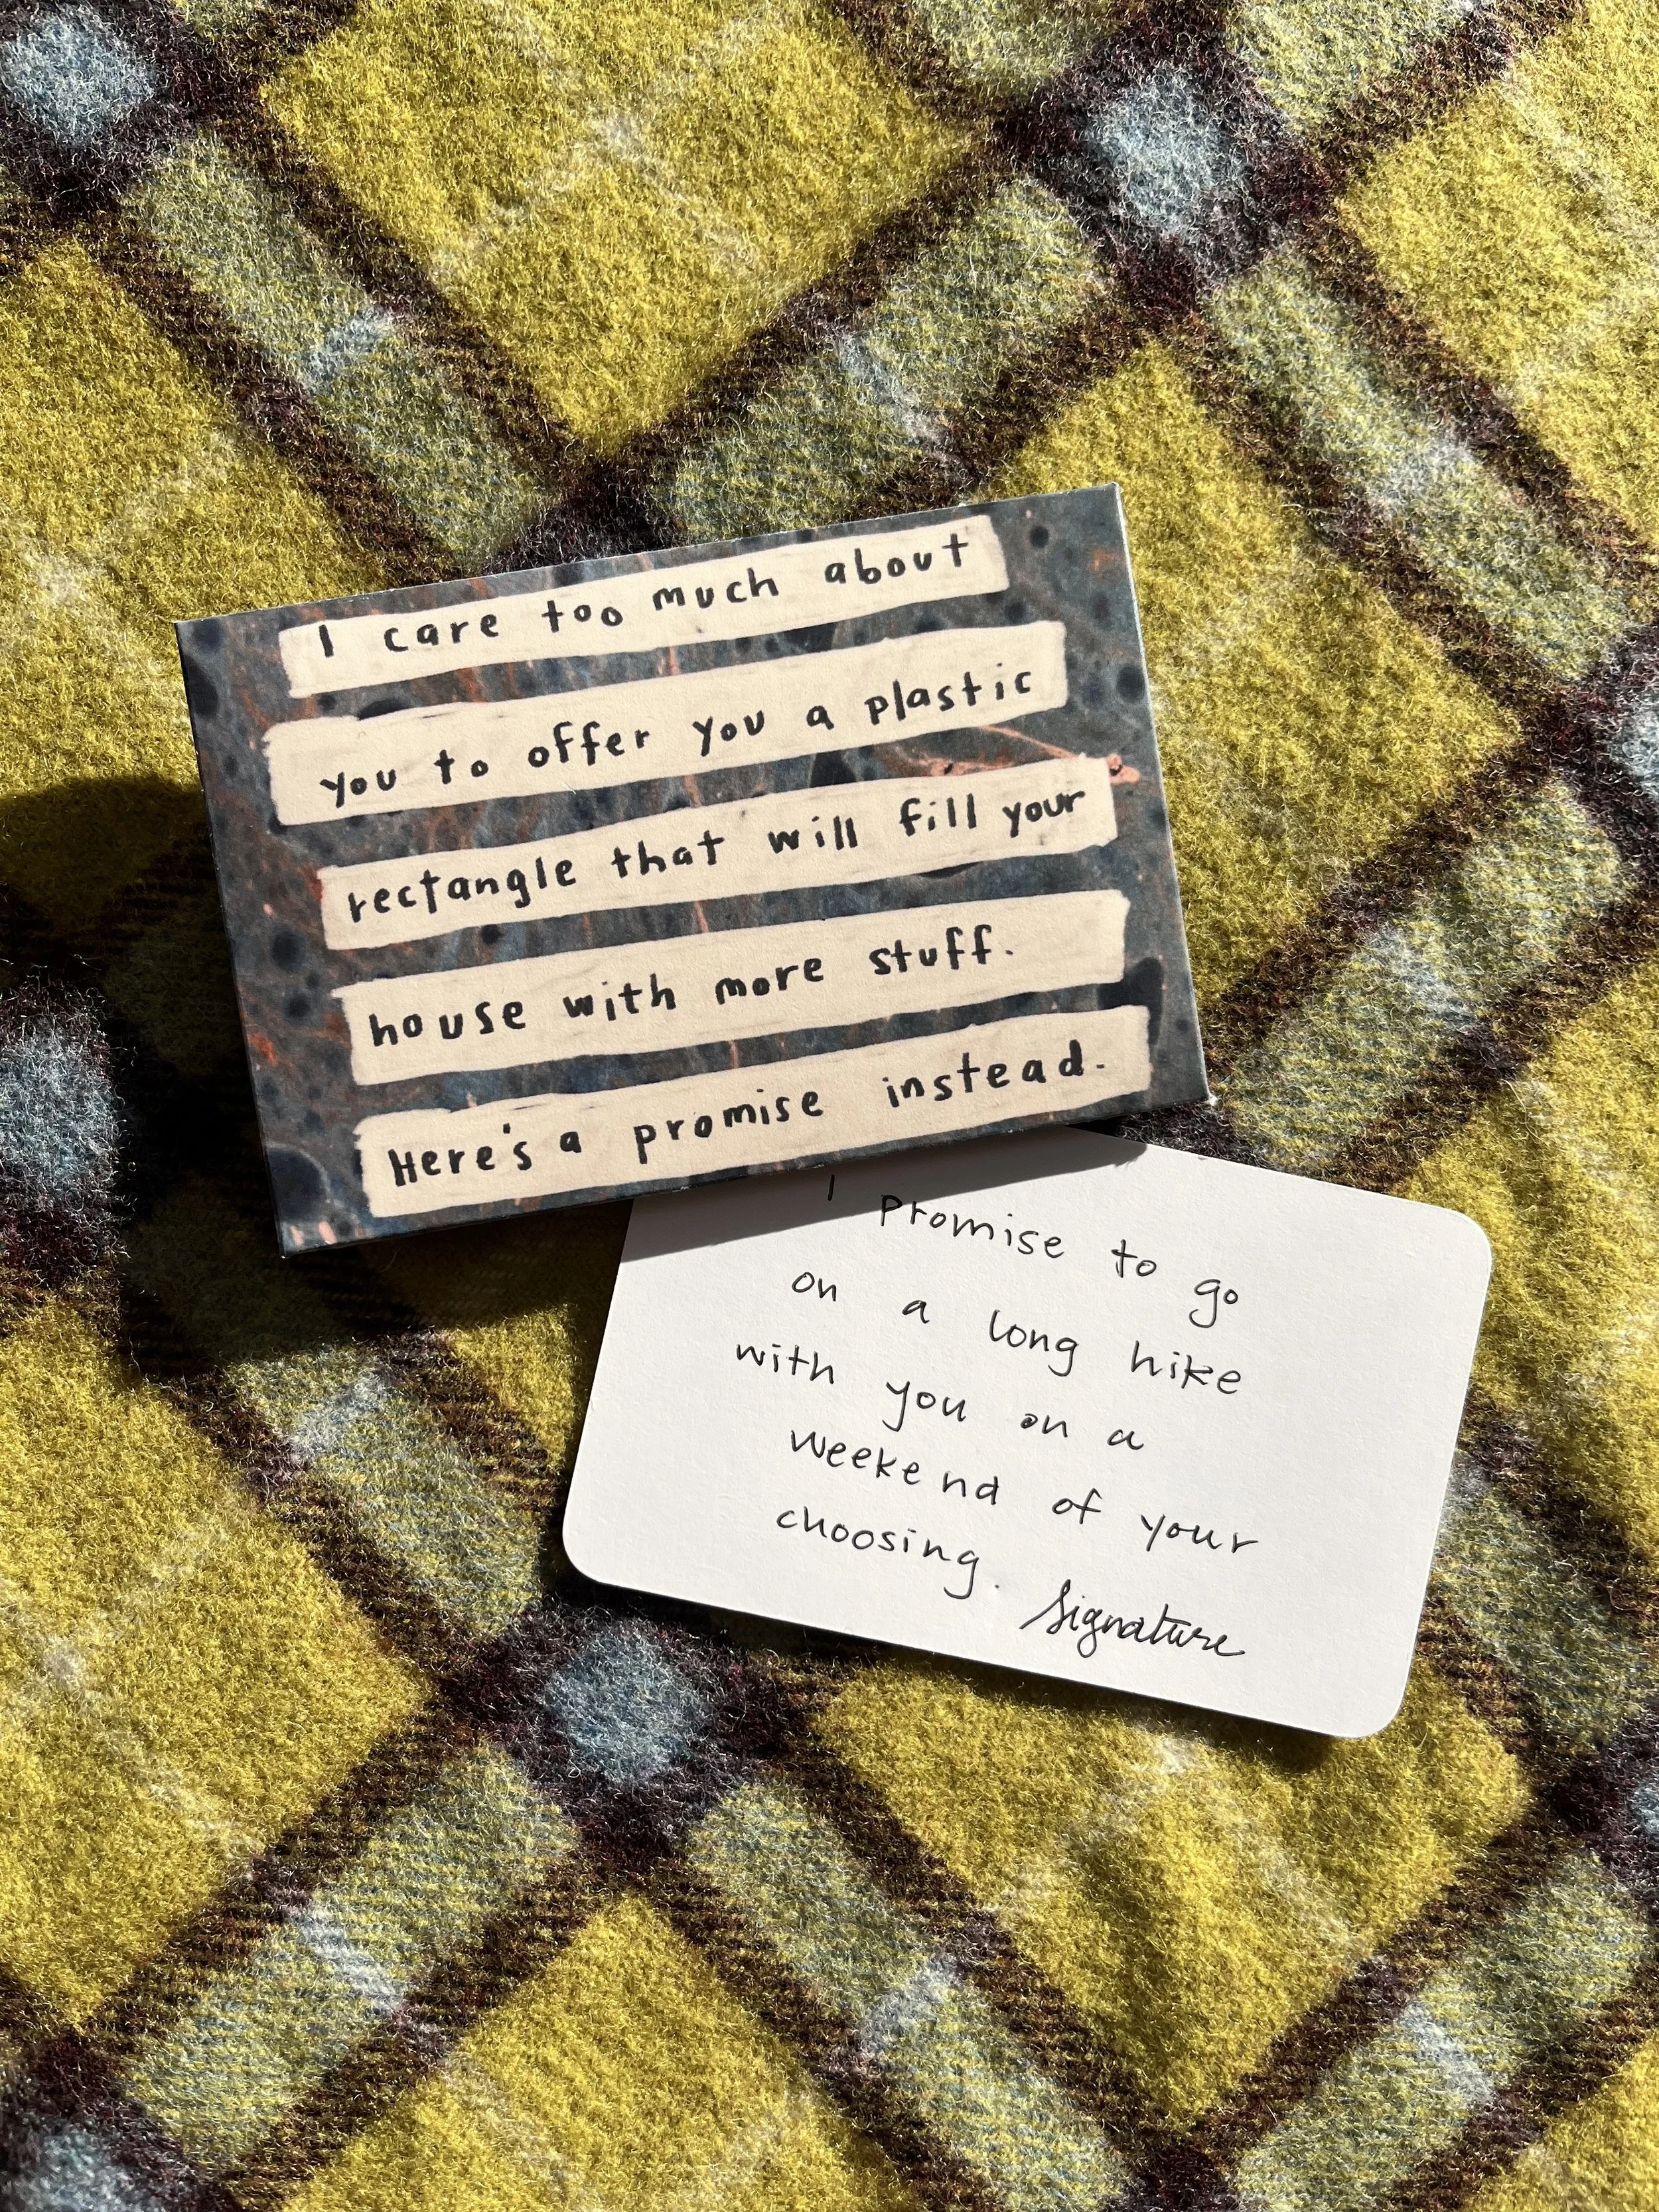 I care too much about
you to offer you a plastic
rectangle that will fill your
house with more stuff.
Here's a promise instead.
I promise to go
on a long hike
with you on a
weekend of your
choosing.
Signature